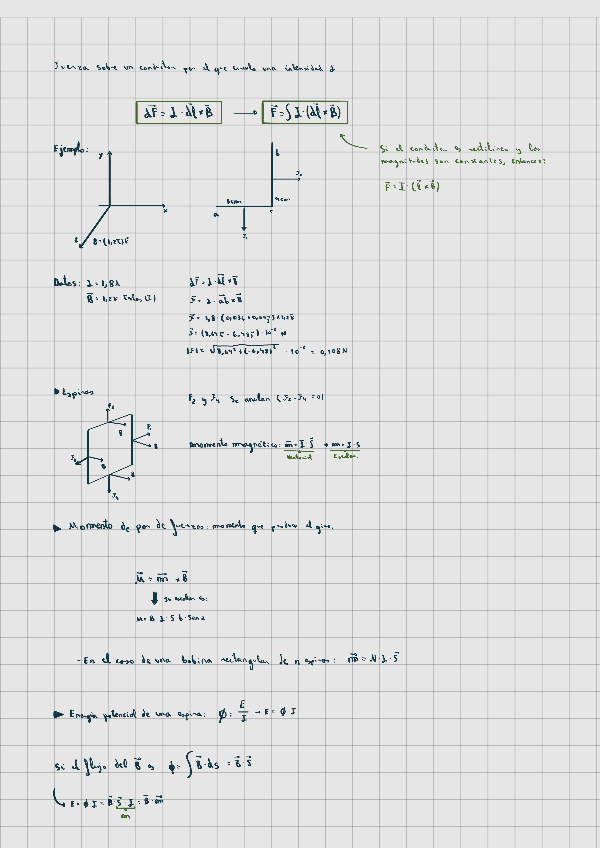 Fuerza sobre un conductor por el que circula una intensidad I
dF⃗ = I · dl⃗ × B⃗ → F⃗ = ∫ I · (dl⃗ × B⃗)
Si el conductor es rectilíneo y las
magnitudes son constantes, entonces:
F⃗ = I · (l⃗ × B⃗)
Ejemplo:
y
x
z
b
a
c
4cm
F₁
Datos: I = 1,8A
dF⃗ = I · dl⃗ × B⃗
F⃗ = I · ab⃗ × B⃗
|F⃗| = √8,64² + (-6,48)² · 10⁻² = 0,108 N
▸ Espiras
F₂ y F₄ se anulan (F₂ - F₄ = 0)
F₂
F₁
B
B
F₃
B
B
F₄
momento magnético: m⃗ = I · S⃗ → m = I · S
Vectorial
Escalar
► Momento de par de fuerzas: momento que produce el giro.
M⃗ = m⃗ × B⃗
su escalar es:
- En el caso de una bobina rectangular de n espiras: m⃗ = N · I · S⃗
► Energía potencial de una espira: ϕ = E/I → E = ϕ I
Si el flujo del B⃗ es ϕ = ∫ B⃗ · ds = B⃗ · S⃗
E = ϕ I = B⃗ · S⃗ · I = B⃗ · m⃗
m